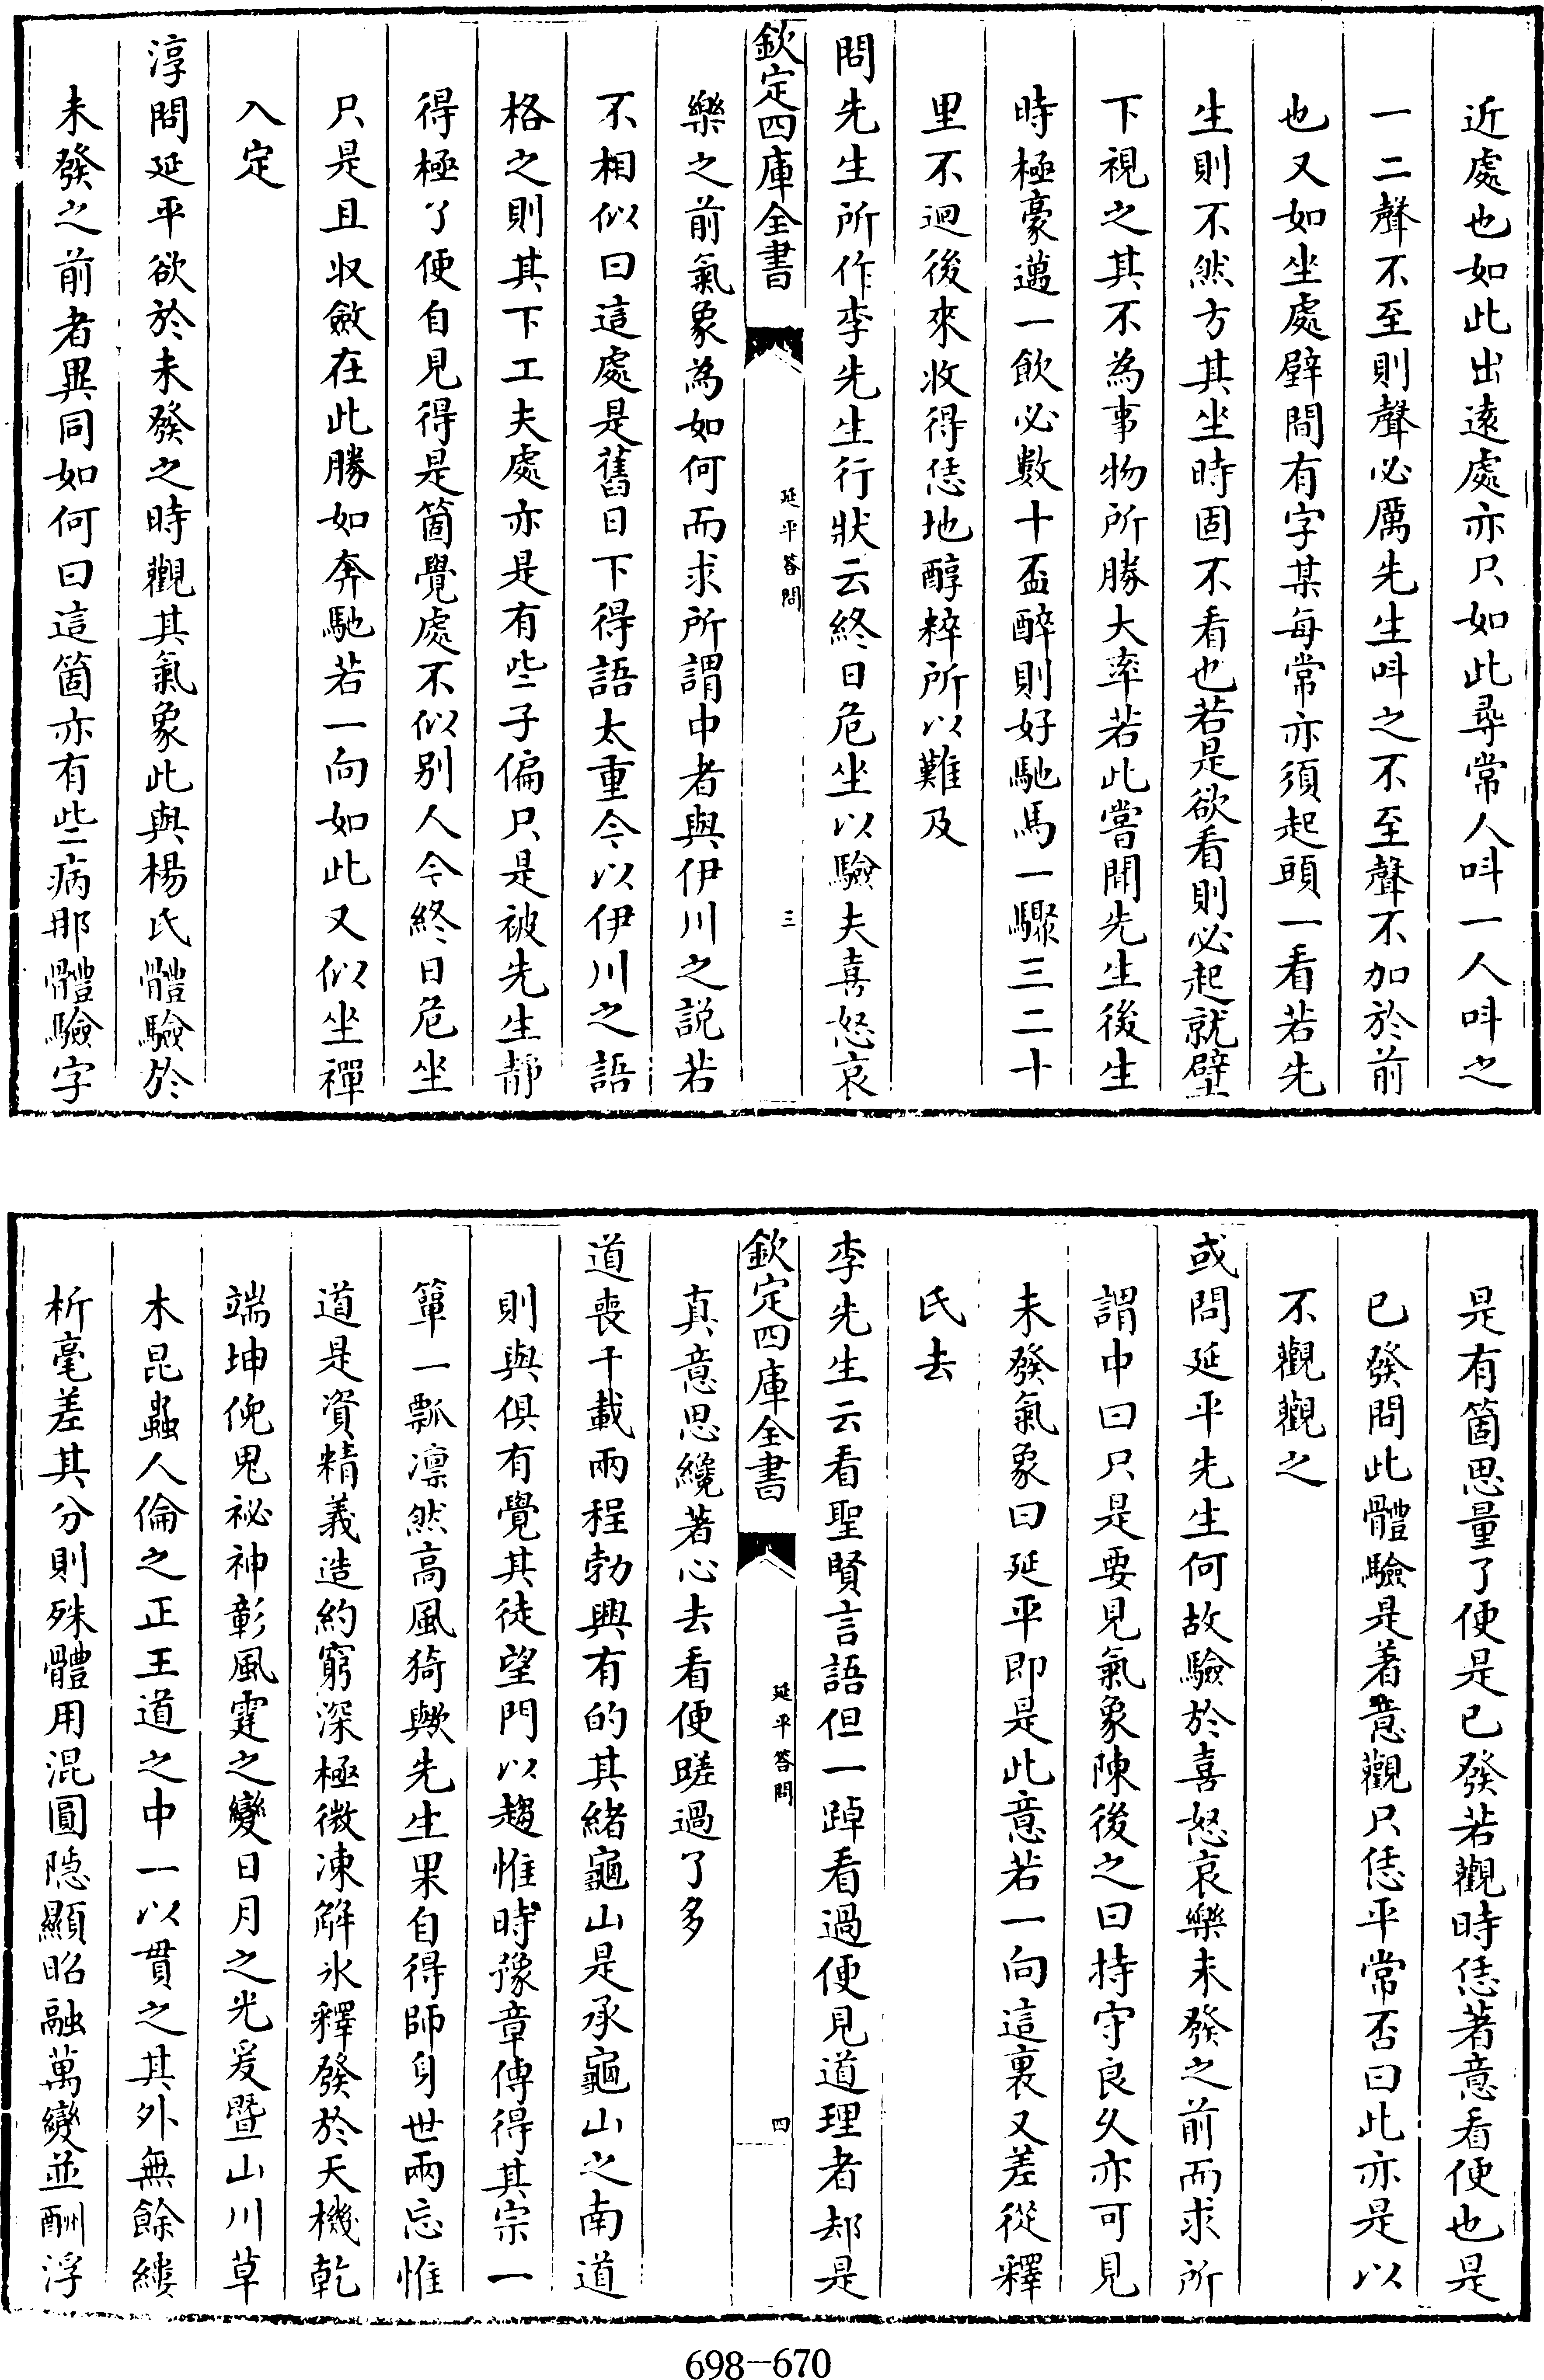 近處也如此出遠處亦只如此尋常人叫一人叫之
一二聲不至則聲必厲先生叫之不至聲不加於前
也又如坐處壁間有字某每常亦須起頭一看若先
生則不然方其坐時固不看也若是欲看則必起就壁
下視之其不為事物所勝大率若此嘗聞先生後生
時極豪邁一飲必數十盃醉則好馳馬一驟三二十
里不迴後來收得恁地醇粹所以難及
問先生所作李先生行狀云終日危坐以驗夫喜怒哀
欽定四庫全書
延平答問
三
樂之前氣象為如何而求所謂中者與伊川之說若
不相似曰這處是舊日下得語太重今以伊川之語
格之則其下工夫處亦是有些子偏只是被先生靜
得極了便自見得是箇覺處不似別人今終日危坐
只是且收斂在此勝如奔馳若一向如此又似坐禪
入定
淳問延平欲於未發之時觀其氣象此與楊氏體驗於
未發之前者異同如何曰這箇亦有些病那體驗字
是有箇思量了便是已發若觀時恁著意看便也是
已發問此體驗是着意觀只恁平常否曰此亦是以
不觀觀之
或問延平先生何故驗於喜怒哀樂未發之前而求所
謂中曰只是要見氣象陳後之曰持守良久亦可見
未發氣象曰延平即是此意若一向這裏又差從釋
氏去
李先生云看聖賢言語但一踔看過便見道理者却是
欽定四庫全書
延平答問
四
真意思纔著心去看便蹉過了多
道喪千載兩程勃興有的其緒龜山是承龜山之南道
則與俱有覺其徒望門以趨惟時豫章傳得其宗一
簞一瓢凛然高風猗歟先生果自得師身世兩忘惟
道是資精義造約窮深極微凍解氷釋發於天機乾
端坤倪鬼祕神彰風霆之變日月之光爰暨山川草
木昆蟲人倫之正王道之中一以貫之其外無餘縷
析毫差其分則殊體用混圓隱顯昭融萬變並酬浮
698-670